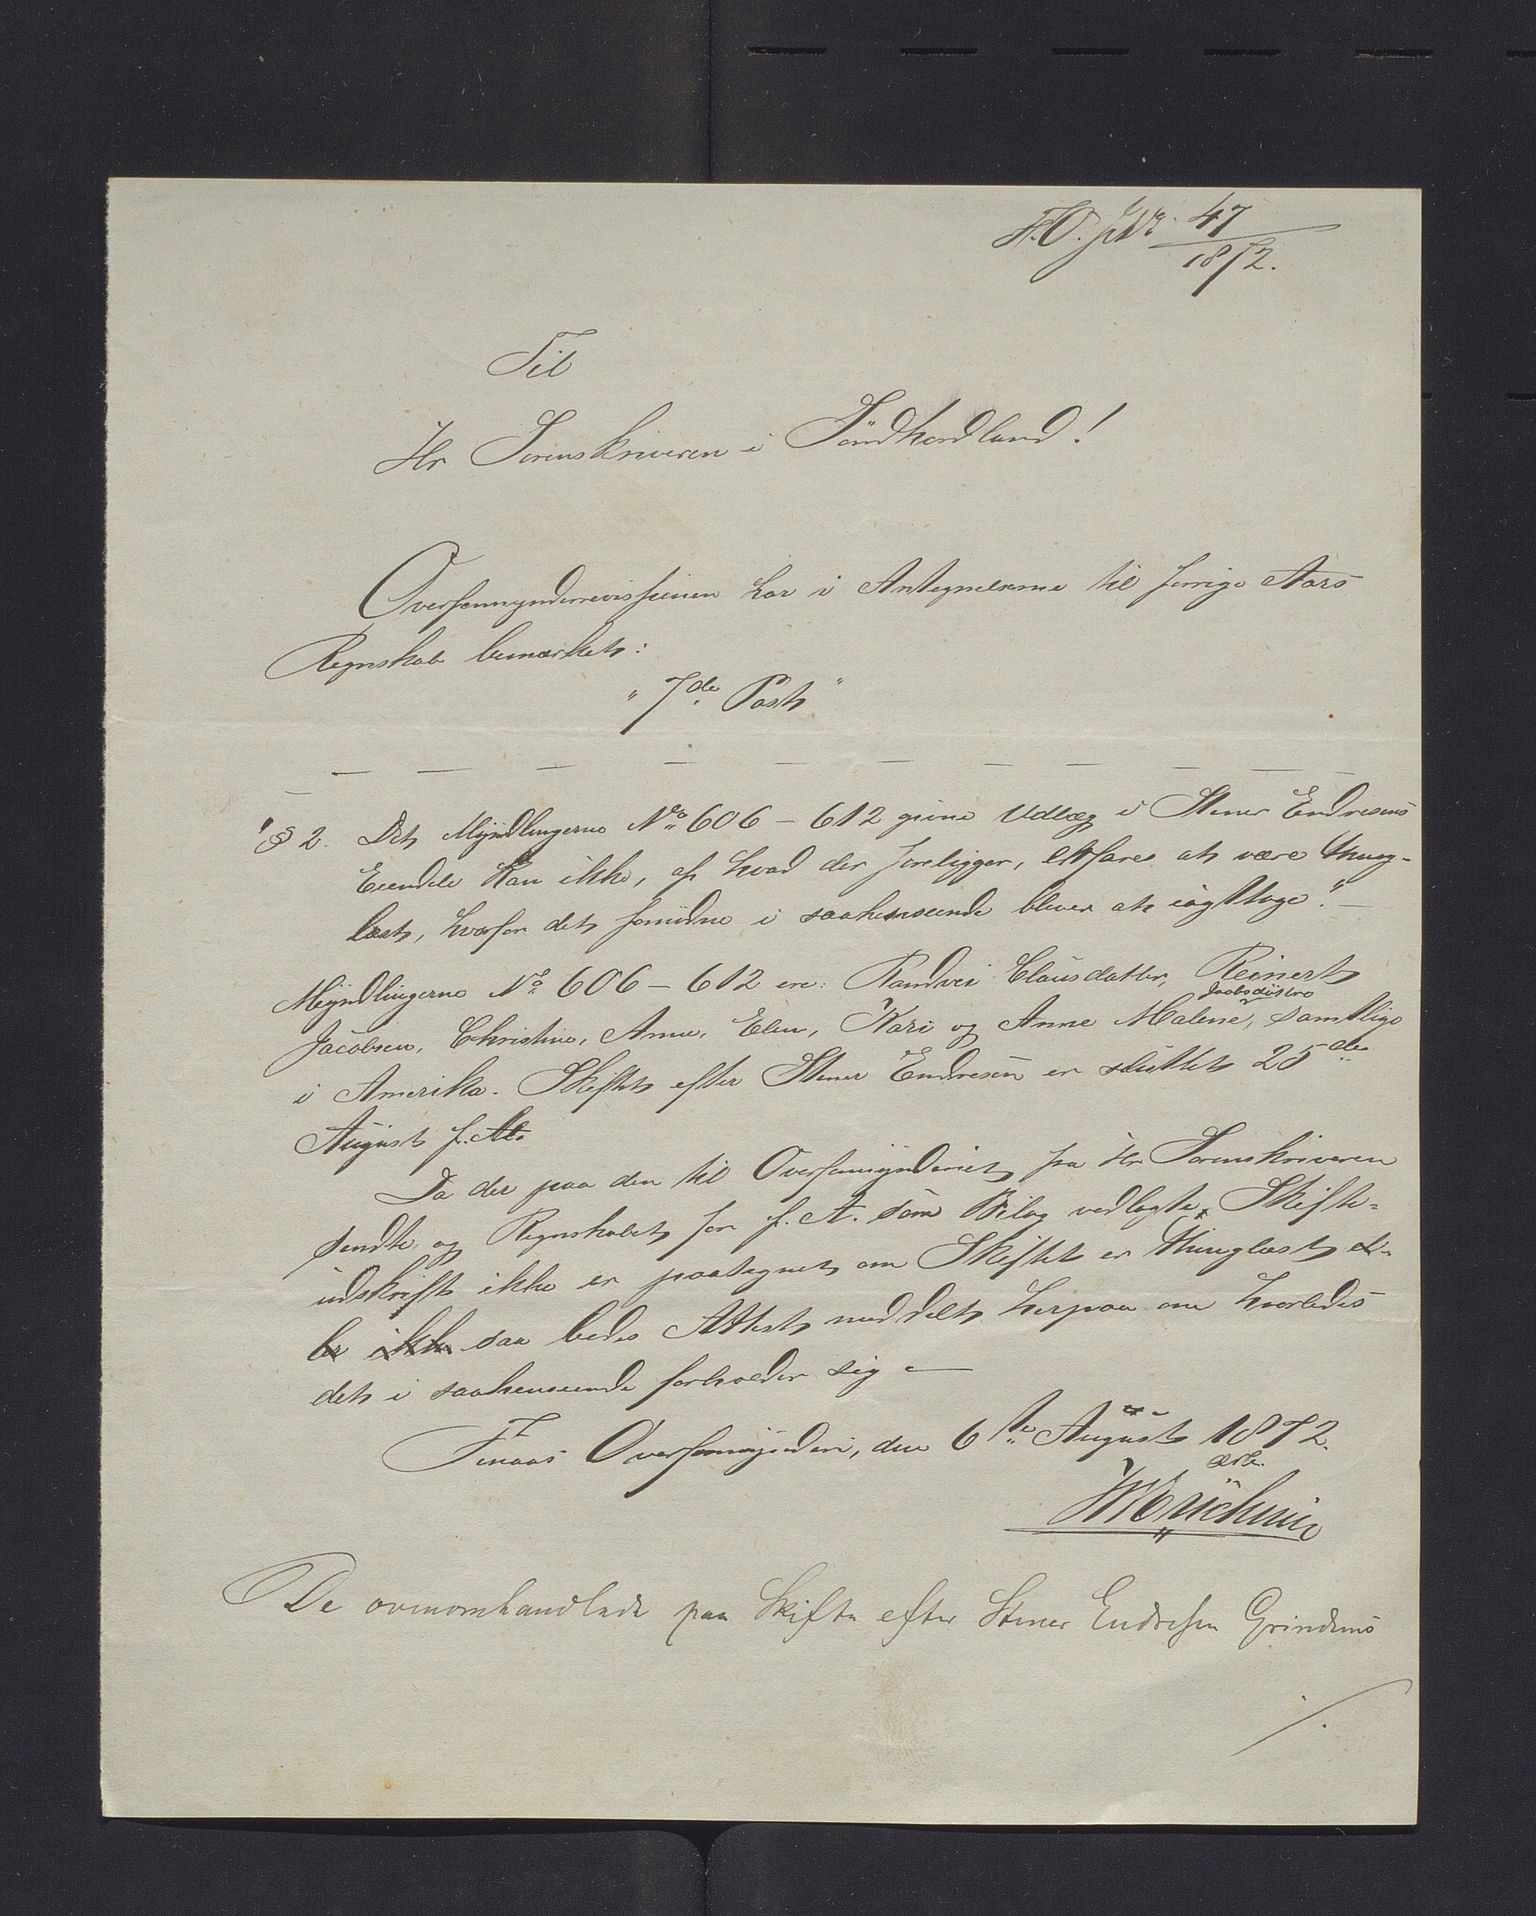 F.O. J.Nr. 47
1872.
Til
Hr Sorenskriveren i Söndhordland!
Overformynderrevisionen har i Antegnelserne til forrige Aars
Regnskab bemærket:
"7de Post"
"§ 2. Det Myndlingerne No 606 – 612 givne Udlæg i Stener Endresens
Eiendele kan ikke, af hvad der foreligger, erfares at være thing-
læst, hvorfor det fornødne i saahenseende bliver at iagttage." –
Myndlingerne No 606 – 612 ere: Randvei Clausdatter, Reinert
Jacobsen, Christine, Anne, Elen, Kari og Anne Malene Jacobsdøttre, samtlige
i Amerika. Skiftet efter Stener Endresen er sluttet 25de
August f. A.
Da der paa den til Overformynderiet fra Hr Sorenskriveren
sendte og Regnskabet for f. A. som Bilag vedlagte Skifte-
udskrift ikke er paategnet om Skiftet er thinglæst el-
ler ikke saa bedes Attest meddelt herpaa om hvorledes
det i saahenseende forholder sig –
Finaas Overformynderi, den 6te August 1872.
ærb.
De ovenomhandlede paa Skifte efter Stener Endresen Grindems
/.